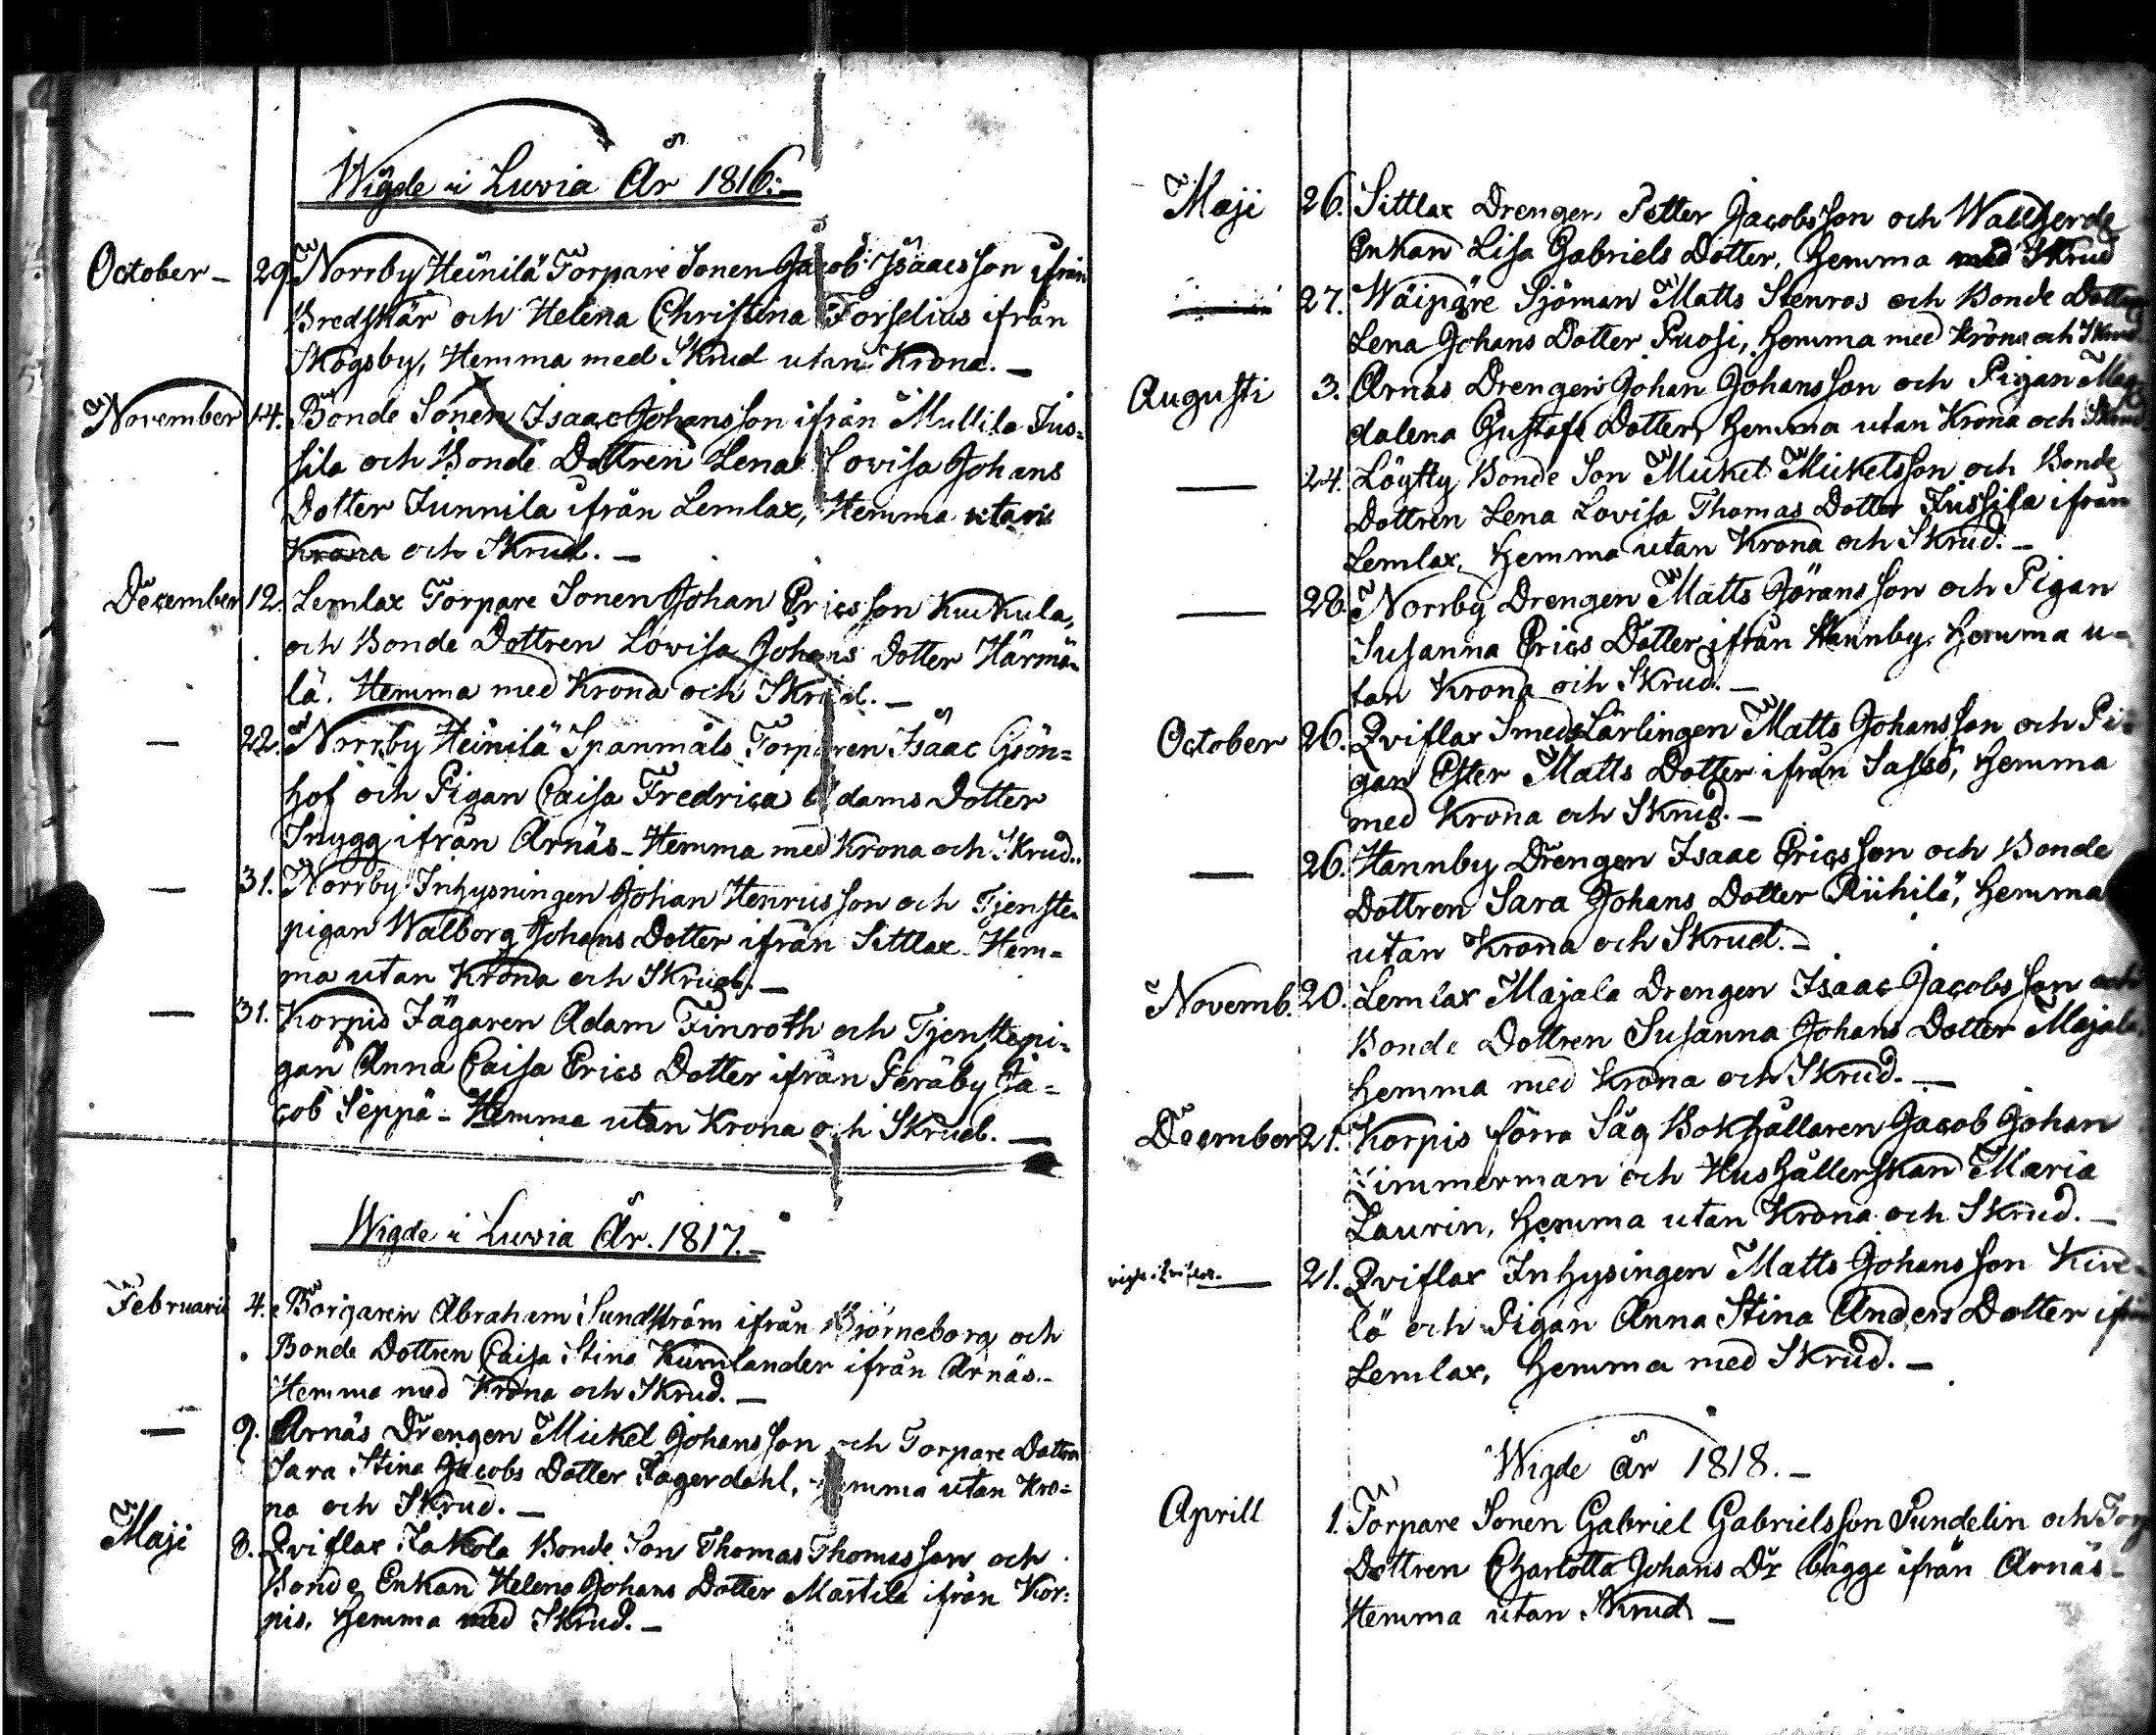 Wigde i Luvia År 1816.
October - 29. Norrby Heinilä Torpare Sonen Jacob Isaacsson ifrån
Bredskär och Helena Christina Forselius ifrån
Skogsby, Hemma med Skrud utan Krona. -
November 14. Bonde Sonen Isaac Johansson ifrån Mullila Jus=
sila och Bonde Dottren Lena Lovisa Johans
Dotter Junnila ifrån Lemlax, Hemma utan
Krona och Skrud. -
December 12. Lemlax Torpare Sonen Johan Ericsson Kukula,
och Bonde Dottren Lovisa Johans Dotter Härmä=
lä. Hemma med Krona och Skrud. -
- 22. Norrby Heinilä Spanmåls Torparen Isaac Grön=
hof och Pigan Caisa Fredrica Adams Dotter
Snygg ifrån Arnäs - Hemma med Krona och Skrud.
- 31. Norrby Inhysningen Johan Henricsson och Tjenste=
pigan Walborg Johans Dotter ifrån Sittlax - Hem=
ma utan Krona och Skrud. -
- 31. Korpis Jägaren Adam Finroth och Tjenstepi=
gan Anna Caisa Erics Dotter ifrån Peräby Ja=
cob Seppä - Hemma utan Krona och Skrud. -
Wigde i Luvia År. 1817. -
Februarii 4. Borgaren Abraham Sundström ifrån Björneborg och
Bonde Dottren Caisa Stina Kurnlander ifrån Arnäs. -
Hemma med Krona och Skrud. -
- 9. Arnäs Drengen Mickel Johansson och Torpare Dottren
Sara Stina Jacobs Dotter Fagerdahl, Hemma utan Kro=
na och Skrud. -
Maji 8. Qviflax Jakola Bonde Son Thomas Thomasson och
Bonde Enkan Helena Johans Dotter Marttila ifrån Kor=
pis, Hemma med Skrud. -
Maji 26. Sittlax Drengen Petter Jacobsson och Wallgerde
Enkan Lisa Gabriels Dotter, hemma med Skrud
27. Sjöman Matts Stenros och Bonde Dottren
Lena Johans Dotter Puosi, hemma med Krona och Skrud
Augusti 3. Arnäs Drengen Johan Johansson och Pigan Mag
dalena Gustafs Dotter, hemma utan Krona och Skrud
- 24. Löytty Bonde Son Mickel Mickelsson och Bonde
Dottren Lena Lovisa Thomas Dotter Jussila ifrån
Lemlax, hemma utan Krona och Skrud. -
- 28. Norrby Drengen Matts Göransson och Pigan
Susanna Erics Dotter ifrån Hannby, hemma u=
tan Krona och Skrud. -
October 26. Qviflax Smeds Lärlingen Matts Johansson och Pi=
gan Ester Matts Dotter ifrån Sassö, hemma
med Krona och Skrud. -
- 26. Hannby Drengen Isaac Ericsson och Bonde
Dottren Sara Johans Dotter Riihilä, hemma
utan Krona och Skrud. -
Novemb. 20. Lemlax Majala Drengen Isaac Jacobsson och
Bonde Dottren Susanna Johans Dotter Majala
hemma med Krona och Skrud. -
December 21. Korpis förra Såg Bokhållaren Jacob Johan
Timmerman och Hushållerskan Maria
Laurin, hemma utan Krona och Skrud. -
- 21. Qviflax Inhysingen Matts Johansson Kive
lä och Pigan Anna Stina Anders Dotter ifrån
Lemlax, hemma med Skrud. -
Wigde år 1818. -
Aprill 1. Torpare Sonen Gabriel Gabrielsson Sundelin och Torp
Dottren Charlotta Johans Dr bägge ifrån Arnäs -
Hemma utan Skrud -